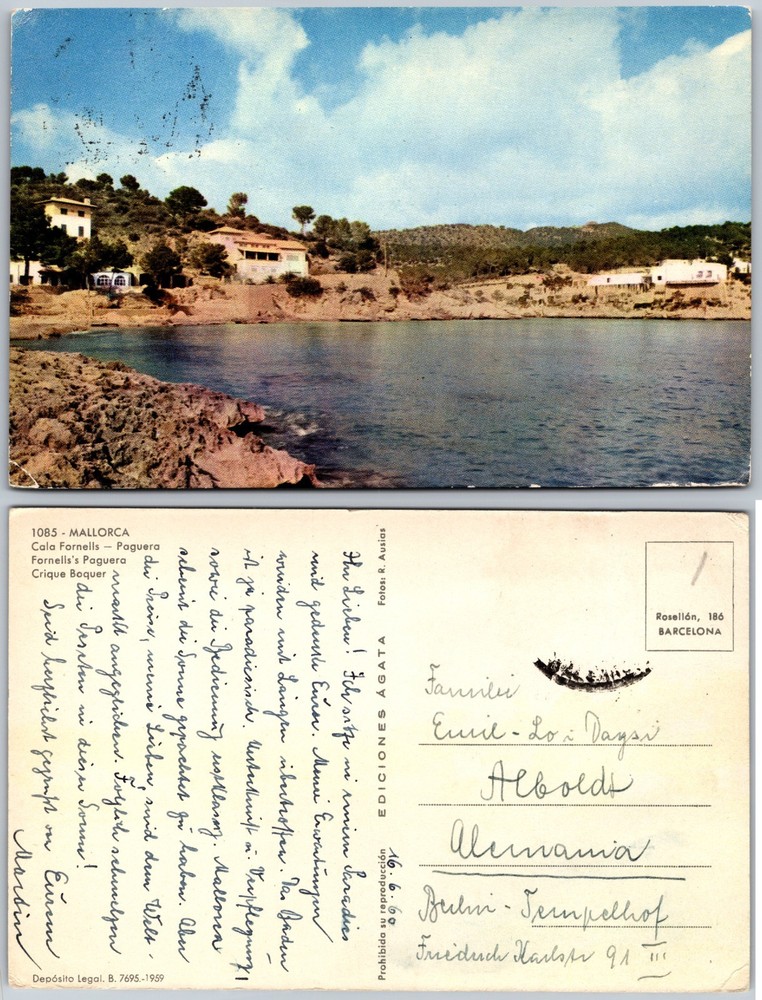 1085 - MALLORCA
Cala Fornells — Paguera
Fornells's Paguera
Crique Boquer
Ihr Lieben! Ich sitze in einem Paradies
und gedenke Eurer. Meine Erwartungen
wurden mit Längen übertroffen. Das Baden
ist ja paradiesisch. Unterkunft u. Verpflegung
sowie die Bedienung erstklassig. Mallorca
scheint die Sonne gepachtet zu haben. Aber
die Preise, meine Lieben, sind dem Welt-
markt angeglichen. Folglich schmelzen
die Peseten in dieser Sonne!
Seid herzlichst gegrüßt von Eurem
Martin
Depósito Legal. B. 7695.-1959
Prohibida su reproducción
EDICIONES ÁGATA
Fotos: R. Ausias
16.6.60
Rosellón, 186
BARCELONA
Familie
Emil-Lo
Alboldt
Alemania
Berlin-Tempelhof
Friedrich Karlstr 91 III